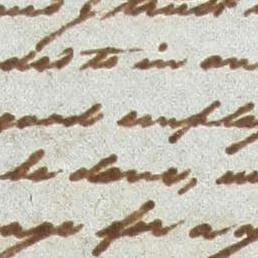 and I think
ded to in an
good employ
be done,
age for a